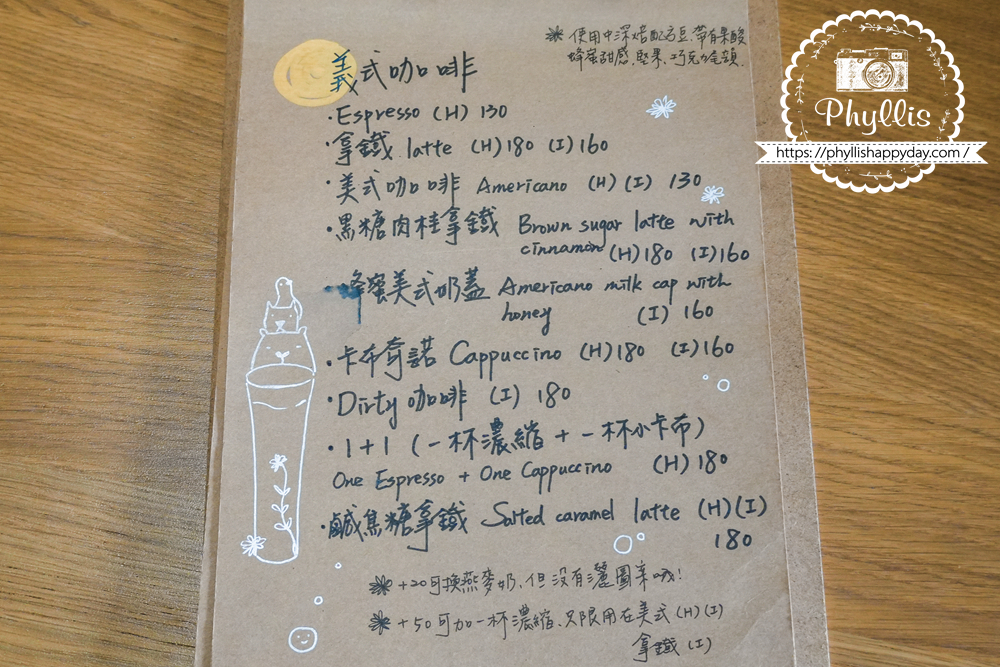 ※使用中深焙配方豆.帶有果酸
蜂蜜甜感.堅果.巧克力尾韻.
Phyllis
https://phyllishappyday.com/
義式咖啡
·Espresso (H) 130
·拿鐵 latte (H)180 (I)160
·美式咖啡 Americano (H)(I) 130
·黑糖肉桂拿鐵 Brown sugar latte with
cinnamon (H)180 (I)160
·蜂蜜美式奶蓋 Americano milk cap with
honey (I) 160
·卡布奇諾 Cappuccino (H)180 (I)160
·Dirty 咖啡 (I) 180
·1+1 (一杯濃縮+一杯小卡布)
One Espresso + One Cappuccino (H)180
·鹹焦糖拿鐵 Salted caramel latte (H)(I)
180
※+20可換燕麥奶.但沒有灑圖案哦!
※+50可加一杯濃縮.只限用在美式(H)(I)
拿鐵(I)